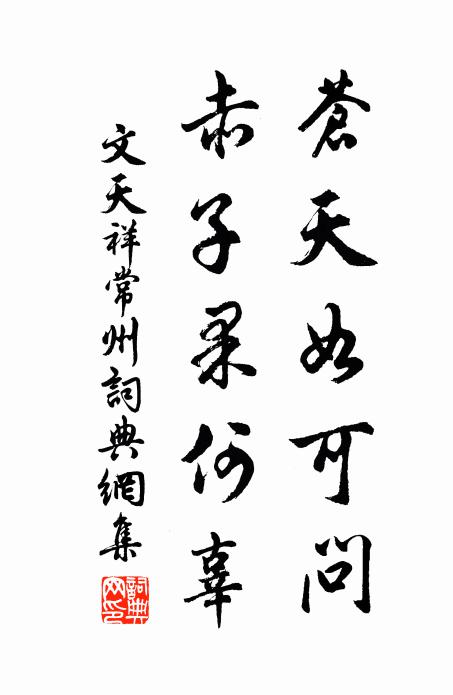 蒼天如可問
赤子果何辜
文天祥常州詞典網集
詞典網印